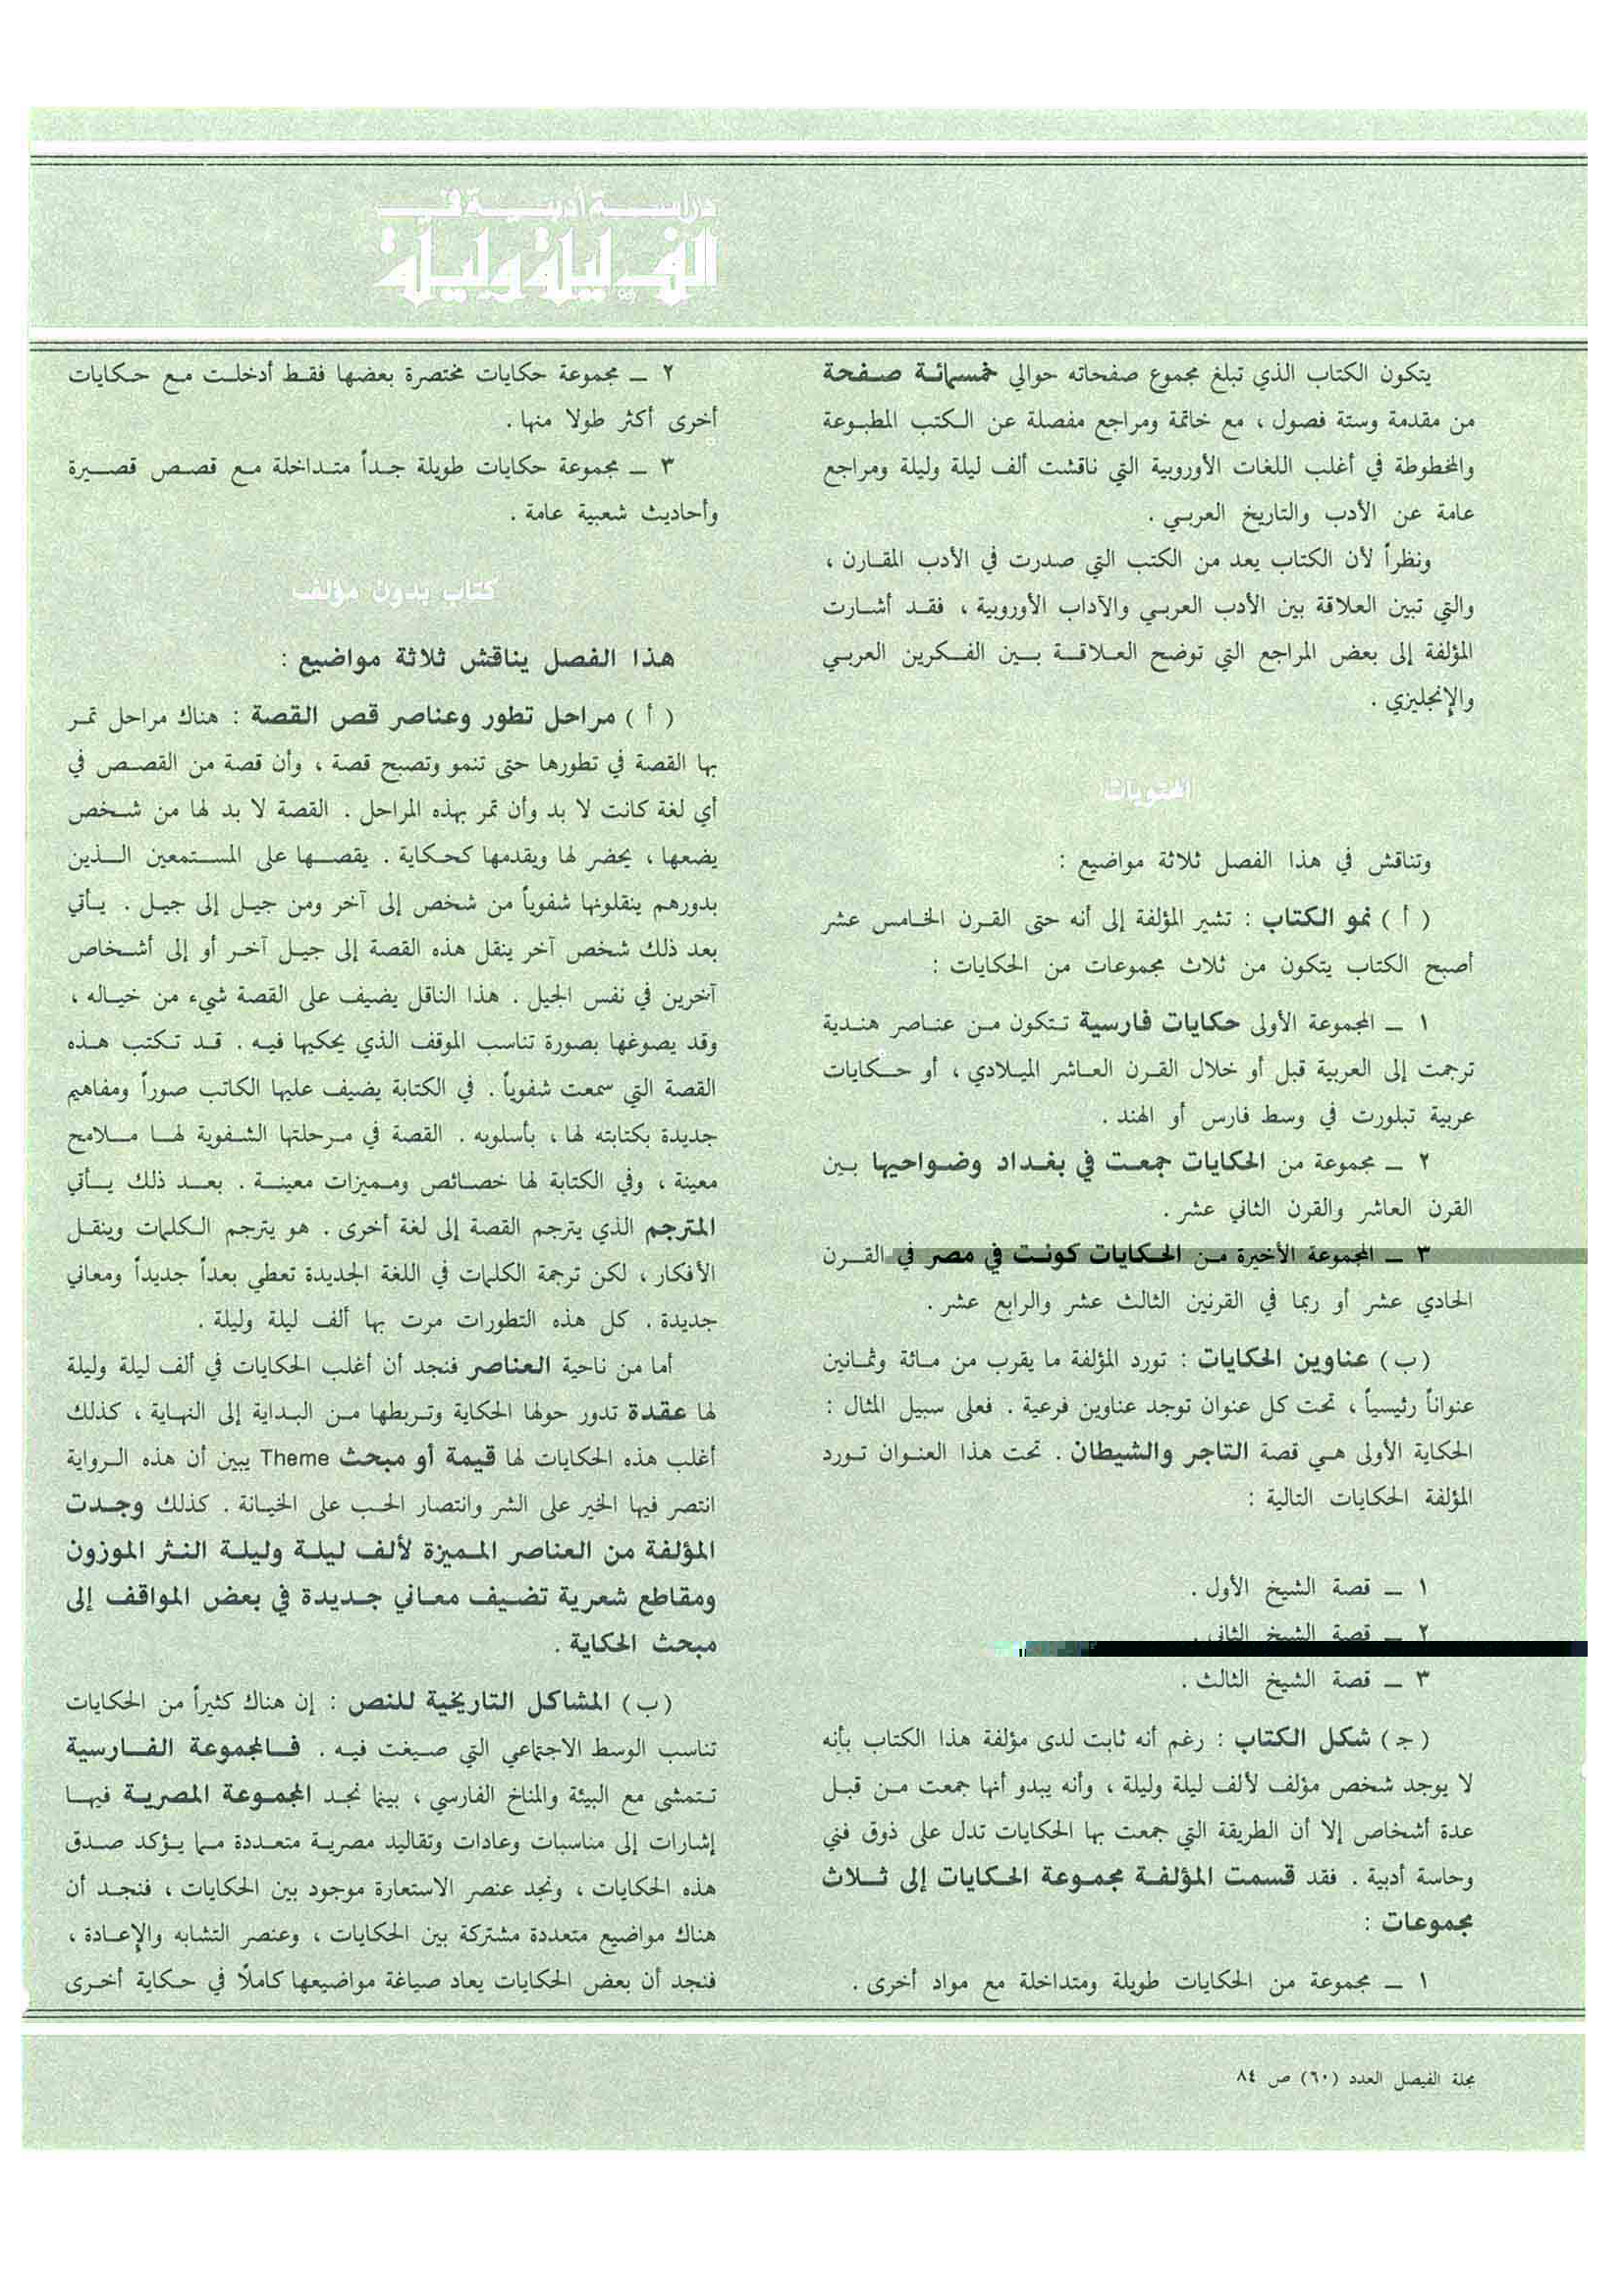 دراسة أدبية في
ألف ليلة وليلة
يتكون الكتاب الذي تبلغ مجموع صفحاته حوالي خمسمائة صفحة
من مقدمة وستة فصول ، مع خاتمة ومراجع مفصلة عن الكتب المطبوعة
والمخطوطة في أغلب اللغات الأوروبية التي ناقشت ألف ليلة وليلة ومراجع
عامة عن الأدب والتاريخ العربي .
ونظراً لأن الكتاب يعد من الكتب التي صدرت في الأدب المقارن ،
والتي تبين العلاقة بين الأدب العربي والآداب الأوروبية ، فقد أشارت
المؤلفة إلى بعض المراجع التي توضح العلاقة بين الفكرين العربي
والإنجليزي .
المحتويات
وتناقش في هذا الفصل ثلاثة مواضيع :
( أ ) نمو الكتاب : تشير المؤلفة إلى أنه حتى القرن الخامس عشر
أصبح الكتاب يتكون من ثلاث مجموعات من الحكايات :
١ ــ المجموعة الأولى حكايات فارسية تتكون من عناصر هندية
ترجمت إلى العربية قبل أو خلال القرن العاشر الميلادي ، أو حكايات
عربية تبلورت في وسط فارس أو الهند .
٢ ــ مجموعة من الحكايات جمعت في بغداد وضواحيها بين
القرن العاشر والقرن الثاني عشر .
٣ ــ المجموعة الأخيرة من الحكايات كونت في مصر في القرن
الحادي عشر أو ربما في القرنين الثالث عشر والرابع عشر .
(ب) عناوين الحكايات : تورد المؤلفة ما يقرب من مائة وثمانين
عنواناً رئيسياً ، تحت كل عنوان توجد عناوين فرعية . فعلى سبيل المثال :
الحكاية الأولى هي قصة التاجر والشيطان . تحت هذا العنوان تورد
المؤلفة الحكايات التالية :
١ ــ قصة الشيخ الأول .
٢ ــ قصة الشيخ الثاني .
٣ ــ قصة الشيخ الثالث .
(جـ) شكل الكتاب : رغم أنه ثابت لدى مؤلفة هذا الكتاب بأنه
لا يوجد شخص مؤلف لألف ليلة وليلة ، وأنه يبدو أنها جمعت من قبل
عدة أشخاص إلا أن الطريقة التي جمعت بها الحكايات تدل على ذوق فني
وحاسة أدبية . فقد قسمت المؤلفة مجموعة الحكايات إلى ثلاث
مجموعات :
١ ــ مجموعة من الحكايات طويلة ومتداخلة مع مواد أخرى .
٢ ــ مجموعة حكايات مختصرة بعضها فقط أدخلت مع حكايات
أخرى أكثر طولا منها .
٣ ــ مجموعة حكايات طويلة جداً متداخلة مع قصص قصيرة
وأحاديث شعبية عامة .
كتاب بدون مؤلف
هذا الفصل يناقش ثلاثة مواضيع :
( أ ) مراحل تطور وعناصر قص القصة : هناك مراحل تمر
بها القصة في تطورها حتى تنمو وتصبح قصة ، وأن قصة من القصص في
أي لغة كانت لا بد وأن تمر بهذه المراحل . القصة لا بد لها من شخص
يضعها ، يحضر لها ويقدمها كحكاية . يقصها على المستمعين الذين
بدورهم ينقلونها شفوياً من شخص إلى آخر ومن جيل إلى جيل . يأتي
بعد ذلك شخص آخر ينقل هذه القصة إلى جيل آخر أو إلى أشخاص
آخرين في نفس الجيل . هذا الناقل يضيف على القصة شيء من خياله ،
وقد يصوغها بصورة تناسب الموقف الذي يحكيها فيه . قد تكتب هذه
القصة التي سمعت شفوياً . في الكتابة يضيف عليها الكاتب صوراً ومفاهيم
جديدة بكتابته لها ، بأسلوبه . القصة في مرحلتها الشفوية لها ملامح
معينة ، وفي الكتابة لها خصائص ومميزات معينة . بعد ذلك يأتي
المترجم الذي يترجم القصة إلى لغة أخرى . هو يترجم الكلمات وينقل
الأفكار ، لكن ترجمة الكلمات في اللغة الجديدة تعطي بعداً جديداً ومعاني
جديدة . كل هذه التطورات مرت بها ألف ليلة وليلة .
أما من ناحية العناصر فنجد أن أغلب الحكايات في ألف ليلة وليلة
لها عقدة تدور حولها الحكاية وتربطها من البداية إلى النهاية ، كذلك
أغلب هذه الحكايات لها قيمة أو مبحث Theme يبين أن هذه الرواية
انتصر فيها الخير على الشر وانتصار الحب على الخيانة . كذلك وجدت
المؤلفة من العناصر المميزة لألف ليلة وليلة النثر الموزون
ومقاطع شعرية تضيف معاني جديدة في بعض المواقف إلى
مبحث الحكاية .
(ب) المشاكل التاريخية للنص : إن هناك كثيراً من الحكايات
تناسب الوسط الاجتماعي التي صيغت فيه . فالمجموعة الفارسية
تتمشى مع البيئة والمناخ الفارسي ، بينما نجد المجموعة المصرية فيها
إشارات إلى مناسبات وعادات وتقاليد مصرية متعددة مما يؤكد صدق
هذه الحكايات ، ونجد عنصر الاستعارة موجود بين الحكايات ، فنجد أن
هناك مواضيع متعددة مشتركة بين الحكايات ، وعنصر التشابه والإعادة ،
فنجد أن بعض الحكايات يعاد صياغة مواضيعها كاملاً في حكاية أخرى
مجلة الفيصل العدد (٦٠) ص ٨٤